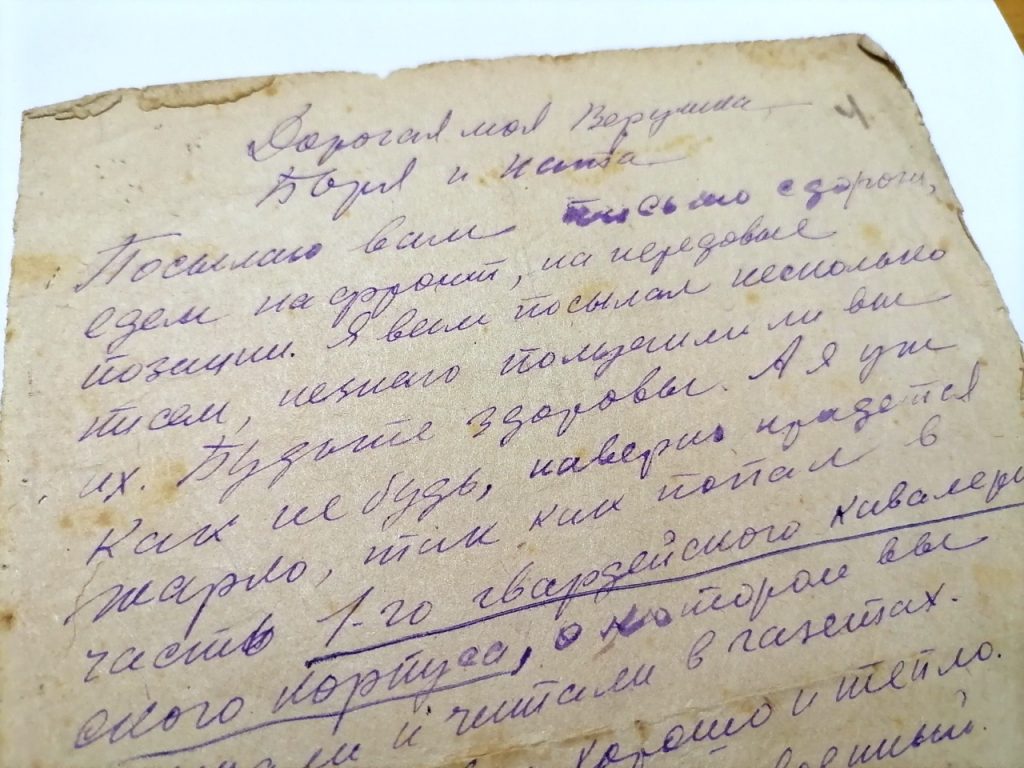 4
Дорогая моя Верушка
Боря и Ната
Посылаю вам письмо с дороги,
едем на фронт, на передовые
позиции. Я вам посылал несколько
писем, незнаю получили ли вы
их. Будьте здоровы. А я уж
как небудь, наверно придется
жарко, так как попал в
часть 1-го гвардейского кавалери
ского корпуса, о котором вы
и читали в газетах.
хорошо и тепло.